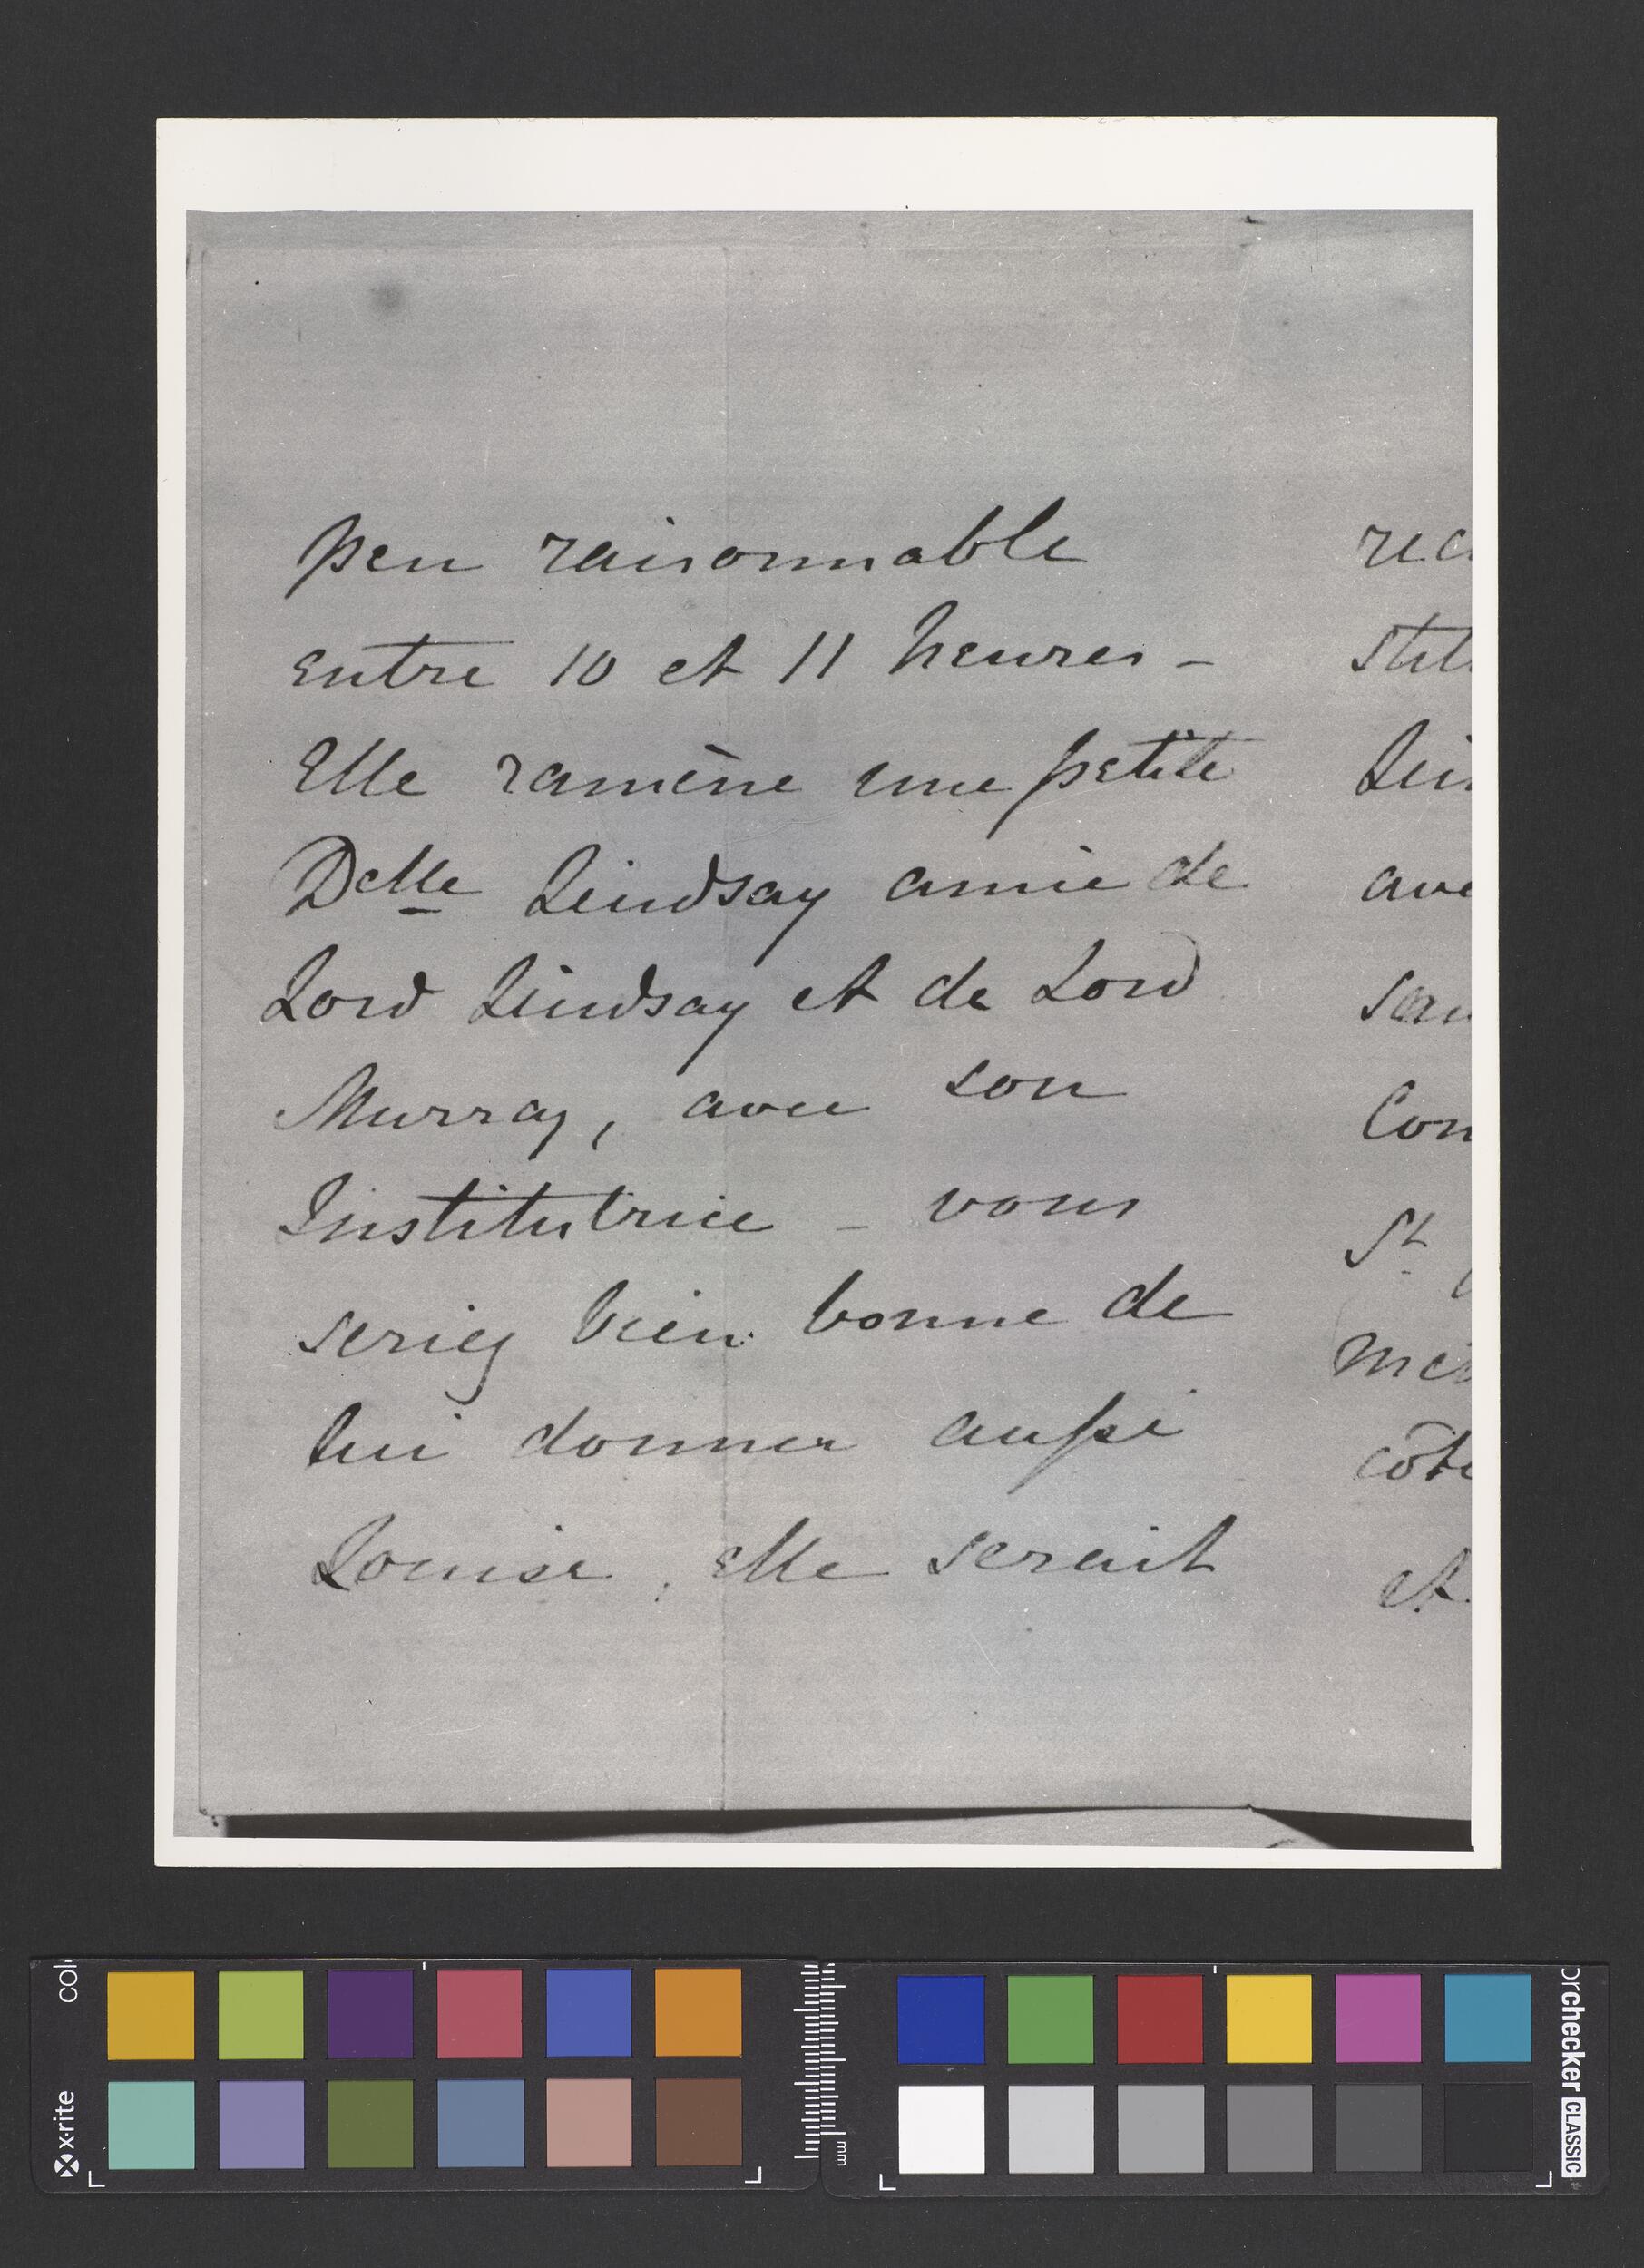 peu raisonnable
entre 10 et 11 heures –
Elle ramène une petite
Delle Lindsay amie de
Lord Lindsay et de Lord
Murray, avec son
Institutrice – vous
seriez bien bonne de
lui donner aussi
Louise, elle serait
rec
stit
Lin
ave
Com
St
côté
et
x-rite
colorchecker CLASSIC
mm